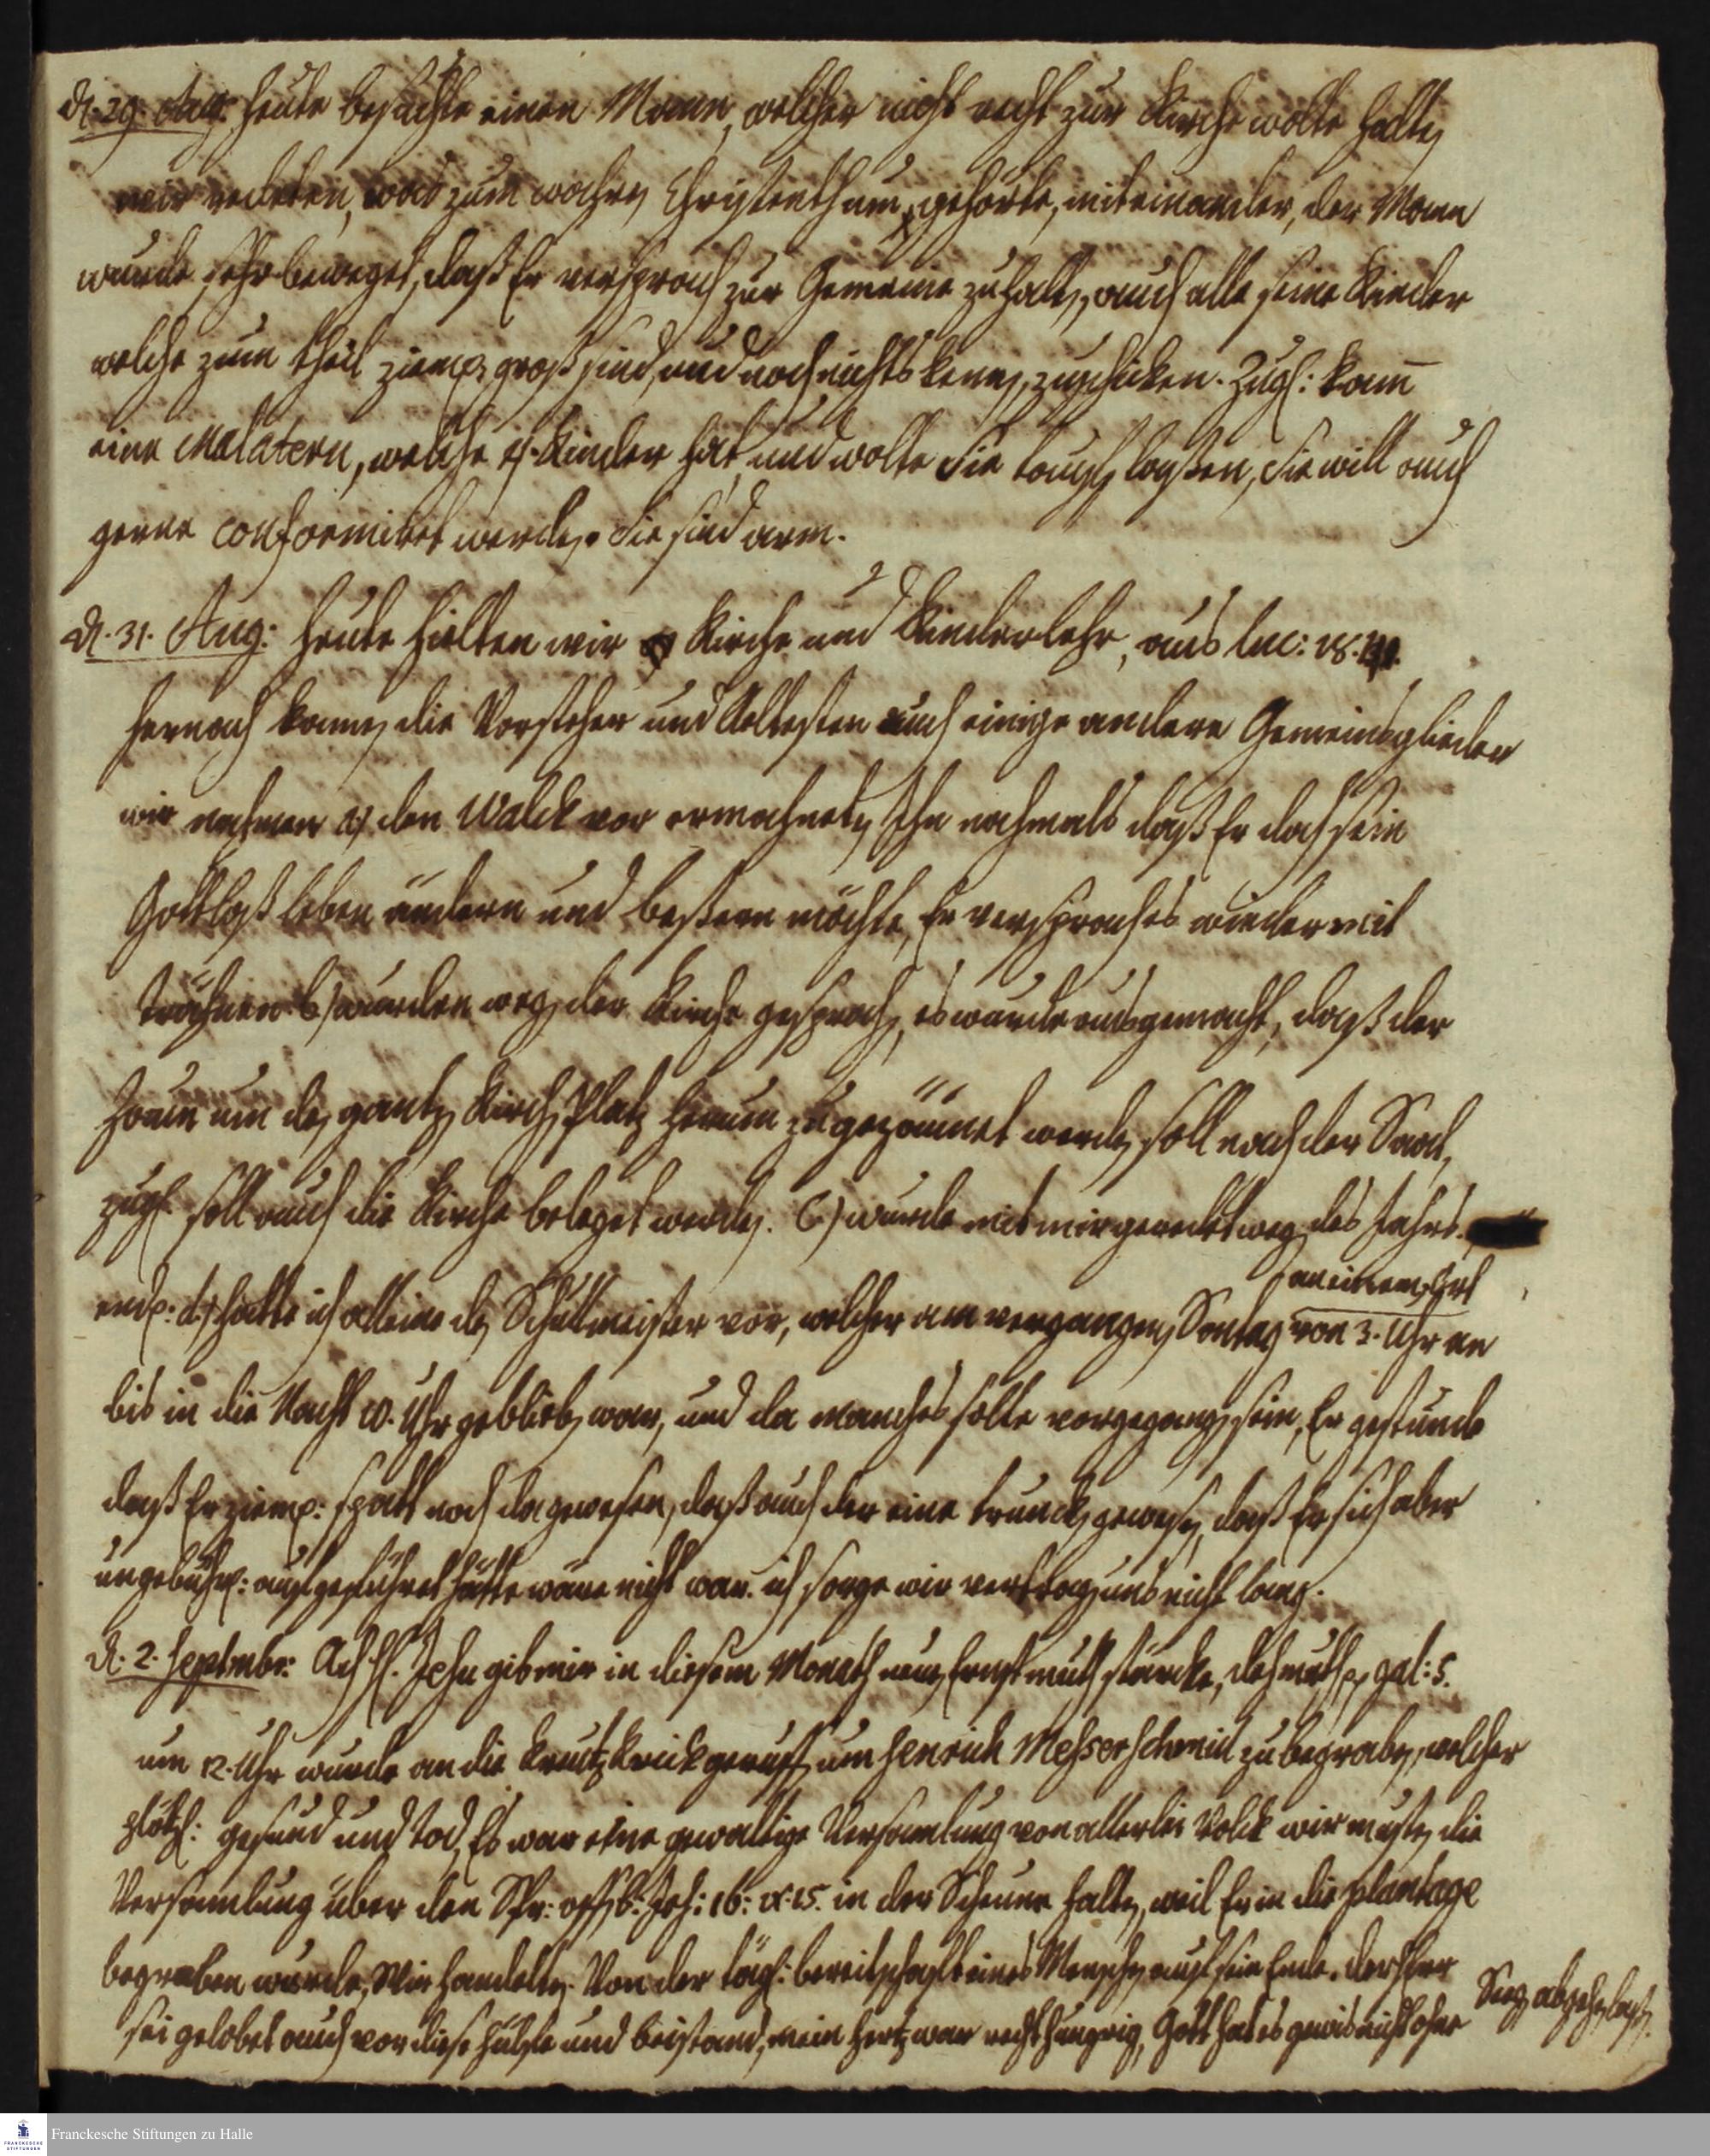 d. 29. Aug: heute besuchte einen Mann, welcher nicht recht zur Kirche wolte halten
wir redeten, was zum wahren Christenthum gehörte, miteinander, der Mann
wurde sehr beweget, daß Er versprach zur Gemeine zu halten, auch alle seine Kinder
welche zum theil ziemlich groß sind, und noch nichts kennen, zuschicken. Zugl: kam
eine Malatern, welche 4. Kinder hat und wolte sie taufen laßen, sie will auch
gerne confirmiret werden. sie sind arm.
d. 31. Aug: heute hielten wir Kirche und Kinderlehr, aus luc: 18.
hernach kamen die Vorsteher und Aeltesten auch einige andere Gemeindglieder
wir nahmen a) den Walck vor ermahneten Ihn nochmals daß Er doch sein
Gottloß leben ändern und beßern möchte, Er versprach es wieder mit
trähnen. b) wurden wegen der Kirche gesprochen, es wurde ausgemacht, daß der
Zaun um den gantzen Kirchen Platz herum zugezäunet werden soll nach der Saad,
zugl. soll auch die Kirche beleget werden. C) wurde mit mir geredet wegen des Jahrs.
an einem Ort
endl: d) hatte ich alleine den Schullmeister vor, welcher am vergangenen Sontag von 3. Uhr an
bis in die Nacht 10. Uhr geblieben war, und da manches solte vorgegangen sein, Er gestunde
daß Er zieml: spatt noch da gewesen, daß auch der eine truncken gewesen, daß Er sich aber
ungebührl: aufgeführet hätte wäre nicht war. ich sorge wir vertragen uns nicht lang.
d. 2. Septmbr: Ach H. Jesu gib mir in diesem Monath neuen Ernst muth stärcke, dehmuth gal: 5.
um 12. Uhr wurde an die Creutz Krick geruffen um Henrich Messerschmid zu begraben, welcher
plötzl: gesund und tod, Es war eine gewaltige Versamlung von allerlei Volck wir musten die
Versamlung über den Spr: offenb: Joh: 16: v. 15. in der Scheune halten, weil Er in die plantage
begraben wurde, Wir handelten. Von der tägl: bereitschafft eines Menschen auf sein Ende. der Herr
sei gelobet auch vor diese hülfe und beistand, mein hertz war recht hungrig, Gott hat es gewis nicht ohne
Seegen abgehen laßen.
Franckesche Stiftungen zu Halle
FRANCKESCHE
STIFTUNGEN